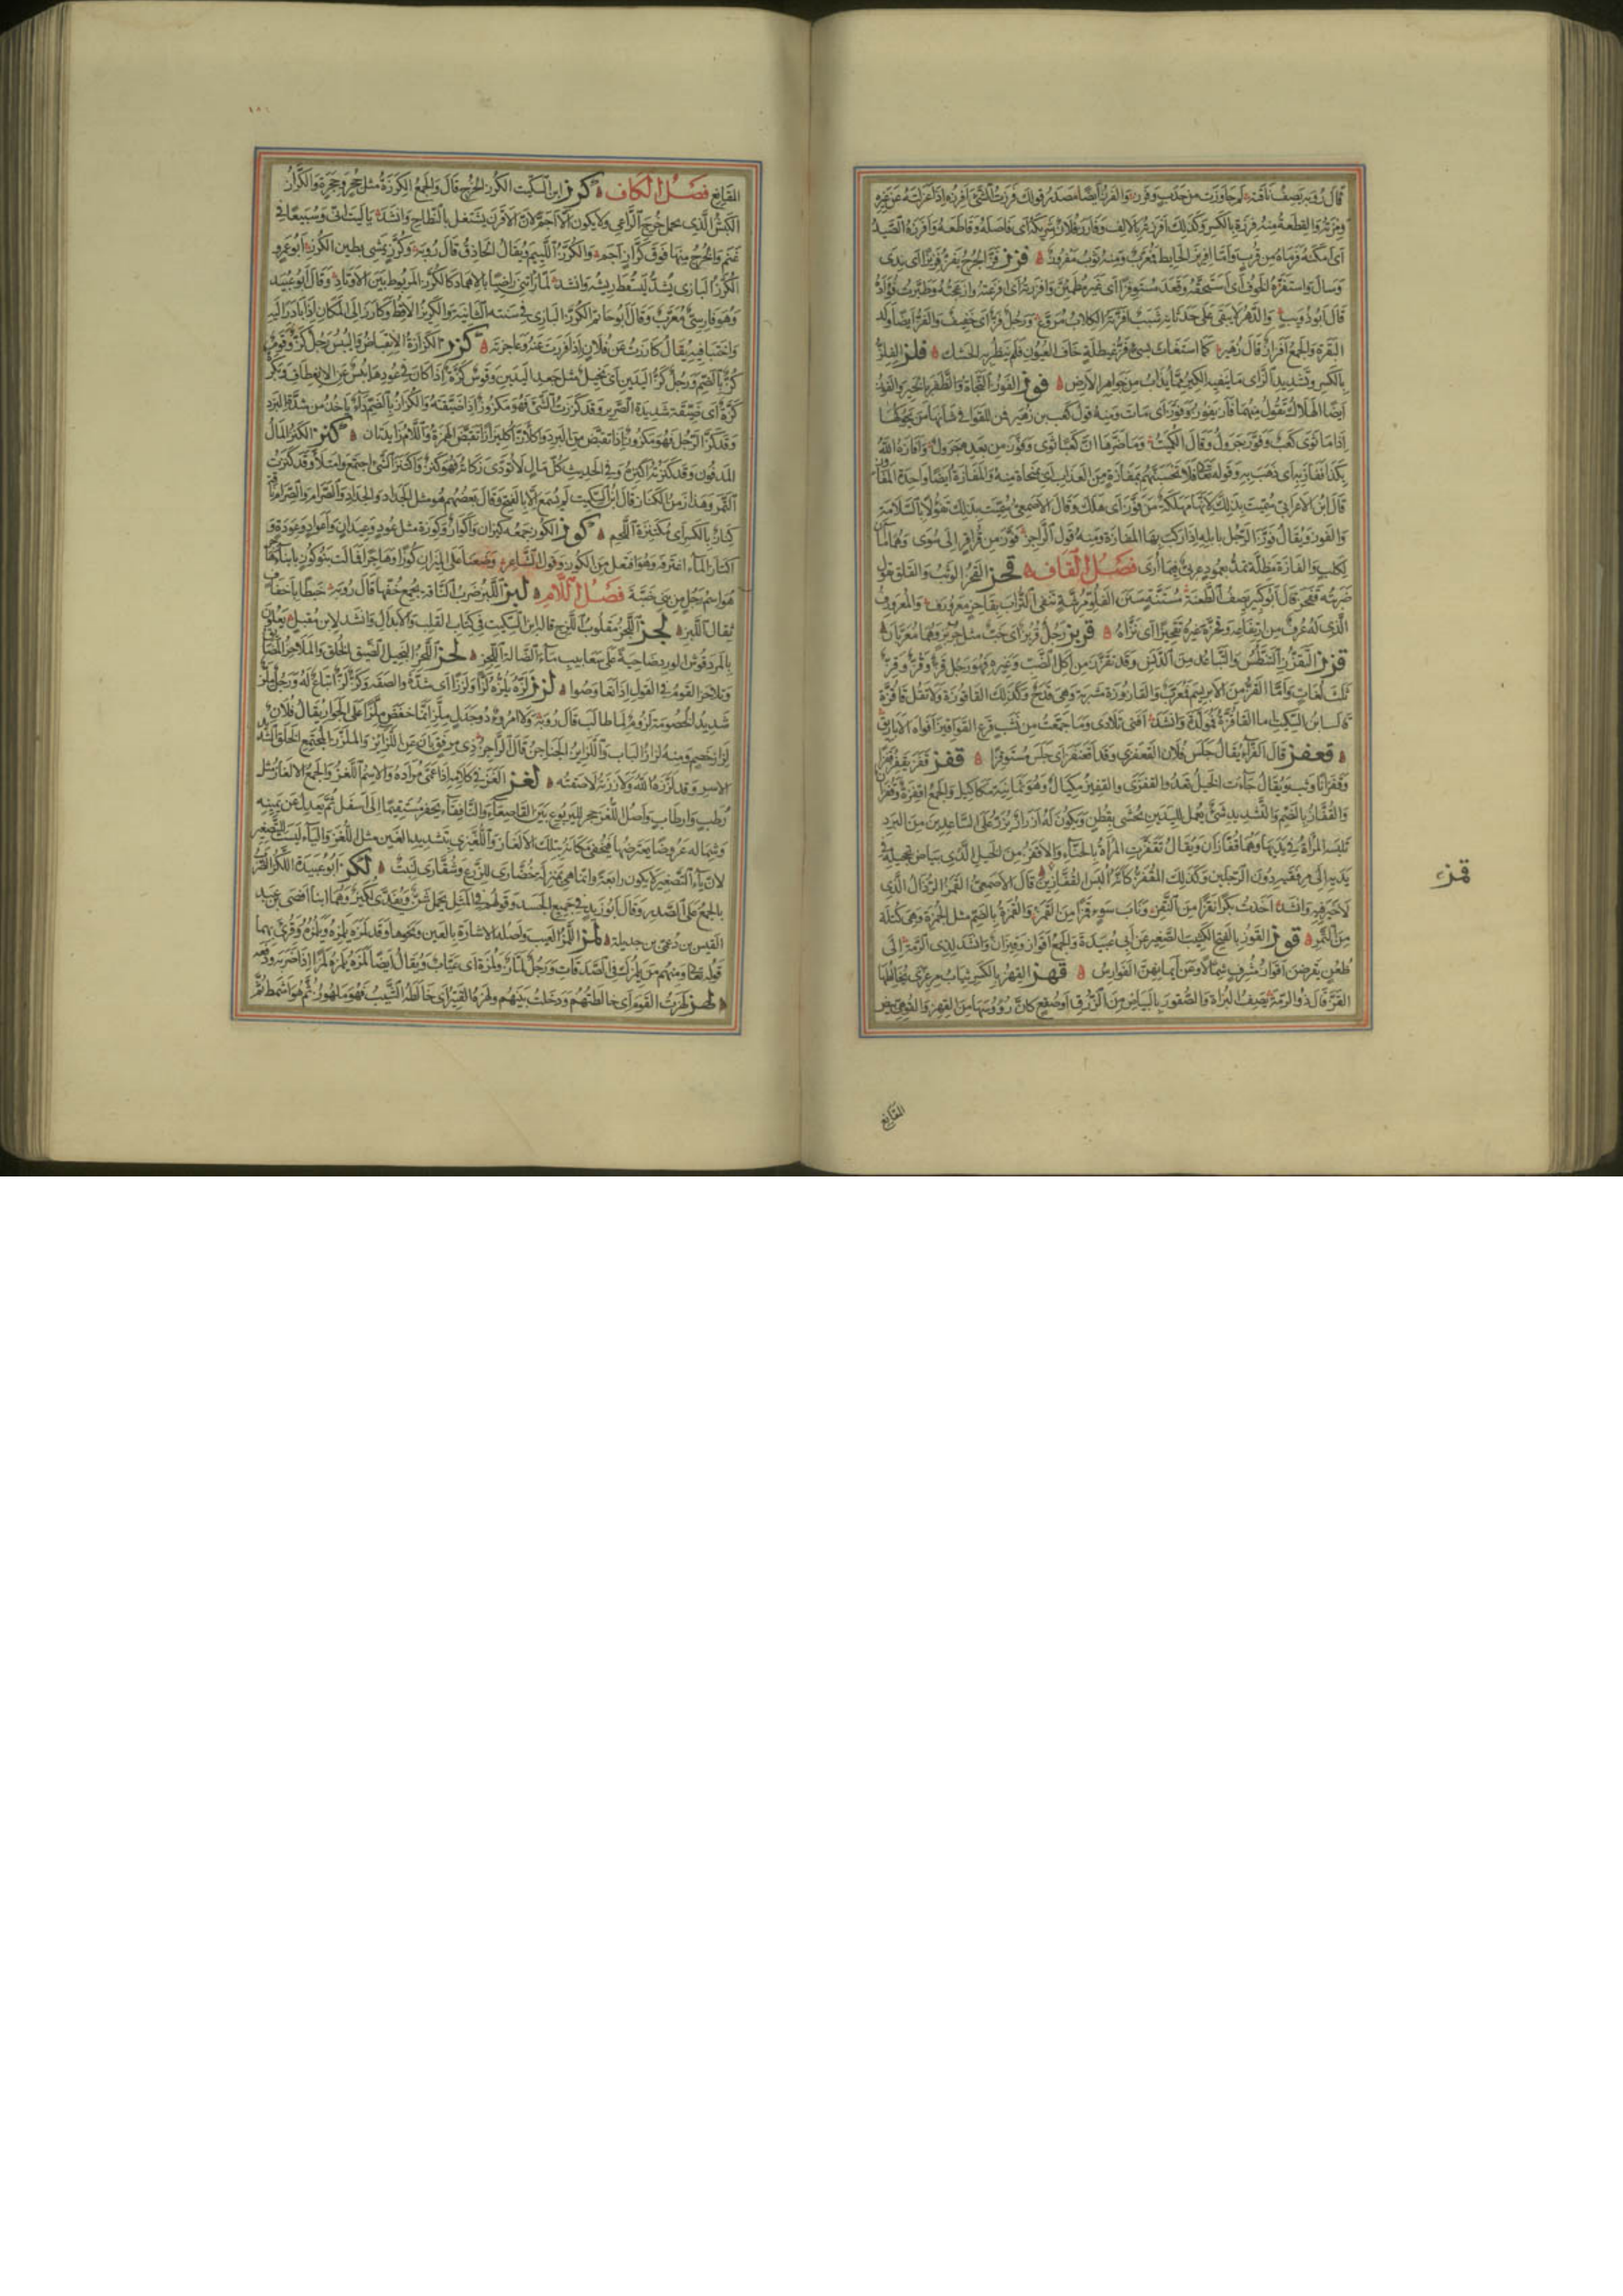 قال رؤبة يصف ناقته
أي أمكنه فرماه من قرب وأما إفريز الحائط فمعرب ومنه ثوب مفروز فزز فز الجرح يفز فزيزا أي ندي
وسال واستفزه الخوف أي استخفه وقعد مستوفزا أي غير مطمئن وأفززته أي أفزعته وأزعجته وطيرت فؤاده
قال أبو ذؤيب والدهر لا يبقى على حدثانه شبب أفزته الكلاب مروع ورجل فز أي خفيف والفز أيضا ولد
البقرة والجمع أفزاز قال زهير كما استغاث بسيء فز غيطلة خاف العيون فلم ينظر به الحشك فلز الفلز
بالكسر وتشديد الزاي ما ينفيه الكير مما يذاب من جواهر الأرض فوز الفوز النجاة والظفر بالخير والفوز
أيضا الهلاك تقول منهما فاز يفوز وفوز أي مات ومنه قول كعب بن زهير فمن للقوافي شانها من يحوكها
إذا ما ثوى كعب وفوز جرول وقال الكميت وما ضرها أن كعبا ثوى وفوز من بعده جرول وأفازه الله
بكذا ففاز به أي ذهب به وقوله تعالى فلا تحسبنهم بمفازة من العذاب أي بمنجاة منه والمفازة أيضا واحدة المفاوز
قال ابن الأعرابي سميت بذلك لأنها مهلكة من فوز أي هلك وقال الأصمعي سميت بذلك تفؤلا بالسلامة
والفوز ويقال فوز الرجل بإبله إذا ركب بها المفازة ومنه قول الراجز فوز من قراقر إلى سوى وهما ماآن
لكلب والفازة مظلة تمد بعمود عربي فيما أرى فصل القاف قحز القحز الوثب والقلق تقول
ضربته فقحز قال أبو كبير يصف الطعنة مستنة سنن الفلو مرشة تنفي التراب بقاحز معرورف والمعرورف
الذي له عرف
قزز التقزز التنطس والتباعد من الدنس وقد تقزز من أكل الضب وغيره فهو رجل قز وقز وقز
ثلث لغات وأما القز من الإبريسم فمعرب والقازوزة مشربة وهي قدح وكذلك القاقوزة ولا تقل قاقزة
قال ابن السكيت أما القاقزة فمولدة وأنشد أفنى تلادي وما جمعت من نشب قرع القواقيز أفواه الأباريق
قعفز قال الفراء يقال جلس فلان القعفزى وقد اقعنفز أي جلس مستوفزا قفز قفز يقفز قفزا
وقفزانا وثب ويقال جاءت الخيل تعدو القفزى والقفيز مكيال وهو ثمانية مكاكيك والجمع أقفزة وقفزان
والقفاز بالضم والتشديد شيء يعمل لليدين يحشى بقطن ويكون له أزرار تزر على الساعدين من البرد
تلبسه المرأة في يديها وهما قفازان ويقال تقفزت المرأة بالحناء والأقفز من الخيل الذي بياض تحجيله في
يديه إلى مرفقيه دون الرجلين وكذلك المقفز كأنه ألبس القفازين قال الأصمعي القمز الرذال الذي
لا خير فيه وأنشد أخذت بكرا نقزا من النقز وناب سوء قمزا من القمز والقمزة بالضم مثل الجمزة وهي كتلة
من التمر قوز القوز بالفتح الكثيب الصغير عن أبي عبيدة والجمع أقواز وقيزان وأنشد لذي الرمة إلى
ظعن يقرضن أقواز مشرف شمالا وعن أيمانهن الفوارس قهز القهز بالكسر ثياب مرعزى يخالطها
القز قال ذو الرمة يصف البزاة والصقور بالبياض من الزرق أو صقع كأن رؤوسها من القهز والقوهي بيض
قمز
القانع
المقانع فصل الكاف كرز ابن السكيت الكرز الخرج قال والجمع الكرزة مثل جحر وجحرة والكراز
الكبش الذي يحمل خرج الراعي ولا يكون إلا أجم لأن الأقرن يشتغل بالنطاح وأنشد يا ليت أني وسبيعا في
غنم والخرج منها فوق كراز أجم والكرز اللئيم ويقال الحاذق قال رؤبة وكرز يمشي بطين الكرز أبو عمرو
الكرز البازي يشد ليسقط ريشه وأنشد لما رأتني راضيا بالإهماد كالكرز المربوط بين الأوتاد وقال أبو عبيد
وهو فارسي معرب وقال أبو حاتم الكرز البازي في سنته الثانية والكريز الأقط وكارز إلى المكان إذا بادر إليه
واختبأ فيه
كز بالضم ورجل كز اليدين أي بخيل مثل جعد اليدين وقوس كزة إذا كان في عودها يبس عن الانعطاف وبكرة
كزة أي ضيقة شديدة الصرير وقد كززت الشيء فهو مكزوز إذا ضيقته والكزاز بالضم داء يأخذ من شدة البرد
وقد كز الرجل فهو مكزوز إذا تقبض من البرد واكلأز اكلئزازا تقبض الهمزة واللام زايدتان كنز الكنز المال
المدفون وقد كنزته أكنزه وفي الحديث كل مال لا تؤدى زكاته فهو كنز واكتنز الشيء اجتمع وامتلأ وقد كنزت
التمر وهذا زمن الكناز قال ابن السكيت لم يسمع إلا بالفتح وقال بعضهم هو مثل الجداد والجداد والصرام والصرام وناقة
كناز بالكسر أي مكتنزة اللحم كوز الكوز جمعه كيزان وأكواز وكوزة مثل عود وعيدان وأعواد وعودة و
اكتاز الماء اغترفه وهو افتعل من الكوز وقول الشاعر وضعنا على الميزان كوزا وهاجرا فمالت بنو كوز بأبناء هاجر
هو اسم رجل من بني ضبة فصل اللام لبز اللبز ضرب الناقة بجمع خفها قال رؤبة خبطا بأخفاف
ثقال اللبز لجز اللجز مقلوب اللزج قاله ابن السكيت في كتاب القلب والإبدال وأنشد لابن مقبل يعلون
بالمردقوش الورد ضاحية على سعابيب ماء الضالة اللجز لحز اللحز البخيل الضيق الخلق والملاحز المضايق
وتلاحز القوم في القول إذا تعاوصوا لزز لزه يلزه لزا ولززا أي شده وألصقه وكز لز إتباع له ورجل ملز
شديد الخصومة لزوم لما طالب قال رؤبة ولا امرؤ ذو جدل ملز إنما خفض ملزا على الجوار يقال فلان
لزاز خصم ومنه لزاز الباب واللزايز الجناجن قال الراجز ذي مرفق بان عن اللزايز والملزز المجتمع الخلق الشديد
الأسر وقد لززه الله ولاززته لاصقته لغز ألغز في كلامه إذا عمى مراده والاسم اللغز والجمع الألغاز مثل
رطب وأرطاب وأصل اللغز جحر لليربوع بين القاصعاء والنافقاء يحفر مستقيما إلى أسفل ثم يعدل عن يمينه
وشماله عروضا يعترضها فيخفى مكانه بتلك الألغاز واللغيزى بتشديد الغين مثل اللغز والياء ليست للتصغير
لأن ياء التصغير لا يكون رابعة وإنما هي بمنزلة خضارى للزرع وشقارى لنبت لكز أبو عبيدة اللكز الضرب
بالجمع على الصدر وقال أبو زيد في جميع الجسد وقولهم في المثل يحمل شن ويفدى لكيز وهما ابنا أفصى بن عبد
القيس بن دعمي بن جديلة لمز اللمز العيب وأصله الإشارة بالعين ونحوها وقد لمزه يلمزه ويلمزه وقرئ بهما
قوله تعالى ومنهم من يلمزك في الصدقات ورجل لماز ولمزة أي عياب ويقال أيضا لمزه يلمزه لمزا إذا ضربه ودفعه
لهز لهزت القوم أي خالطتهم ودخلت بينهم ولهزه القتير أي خالطه الشيب فهو ملهوز ثم هو أشمط ثم